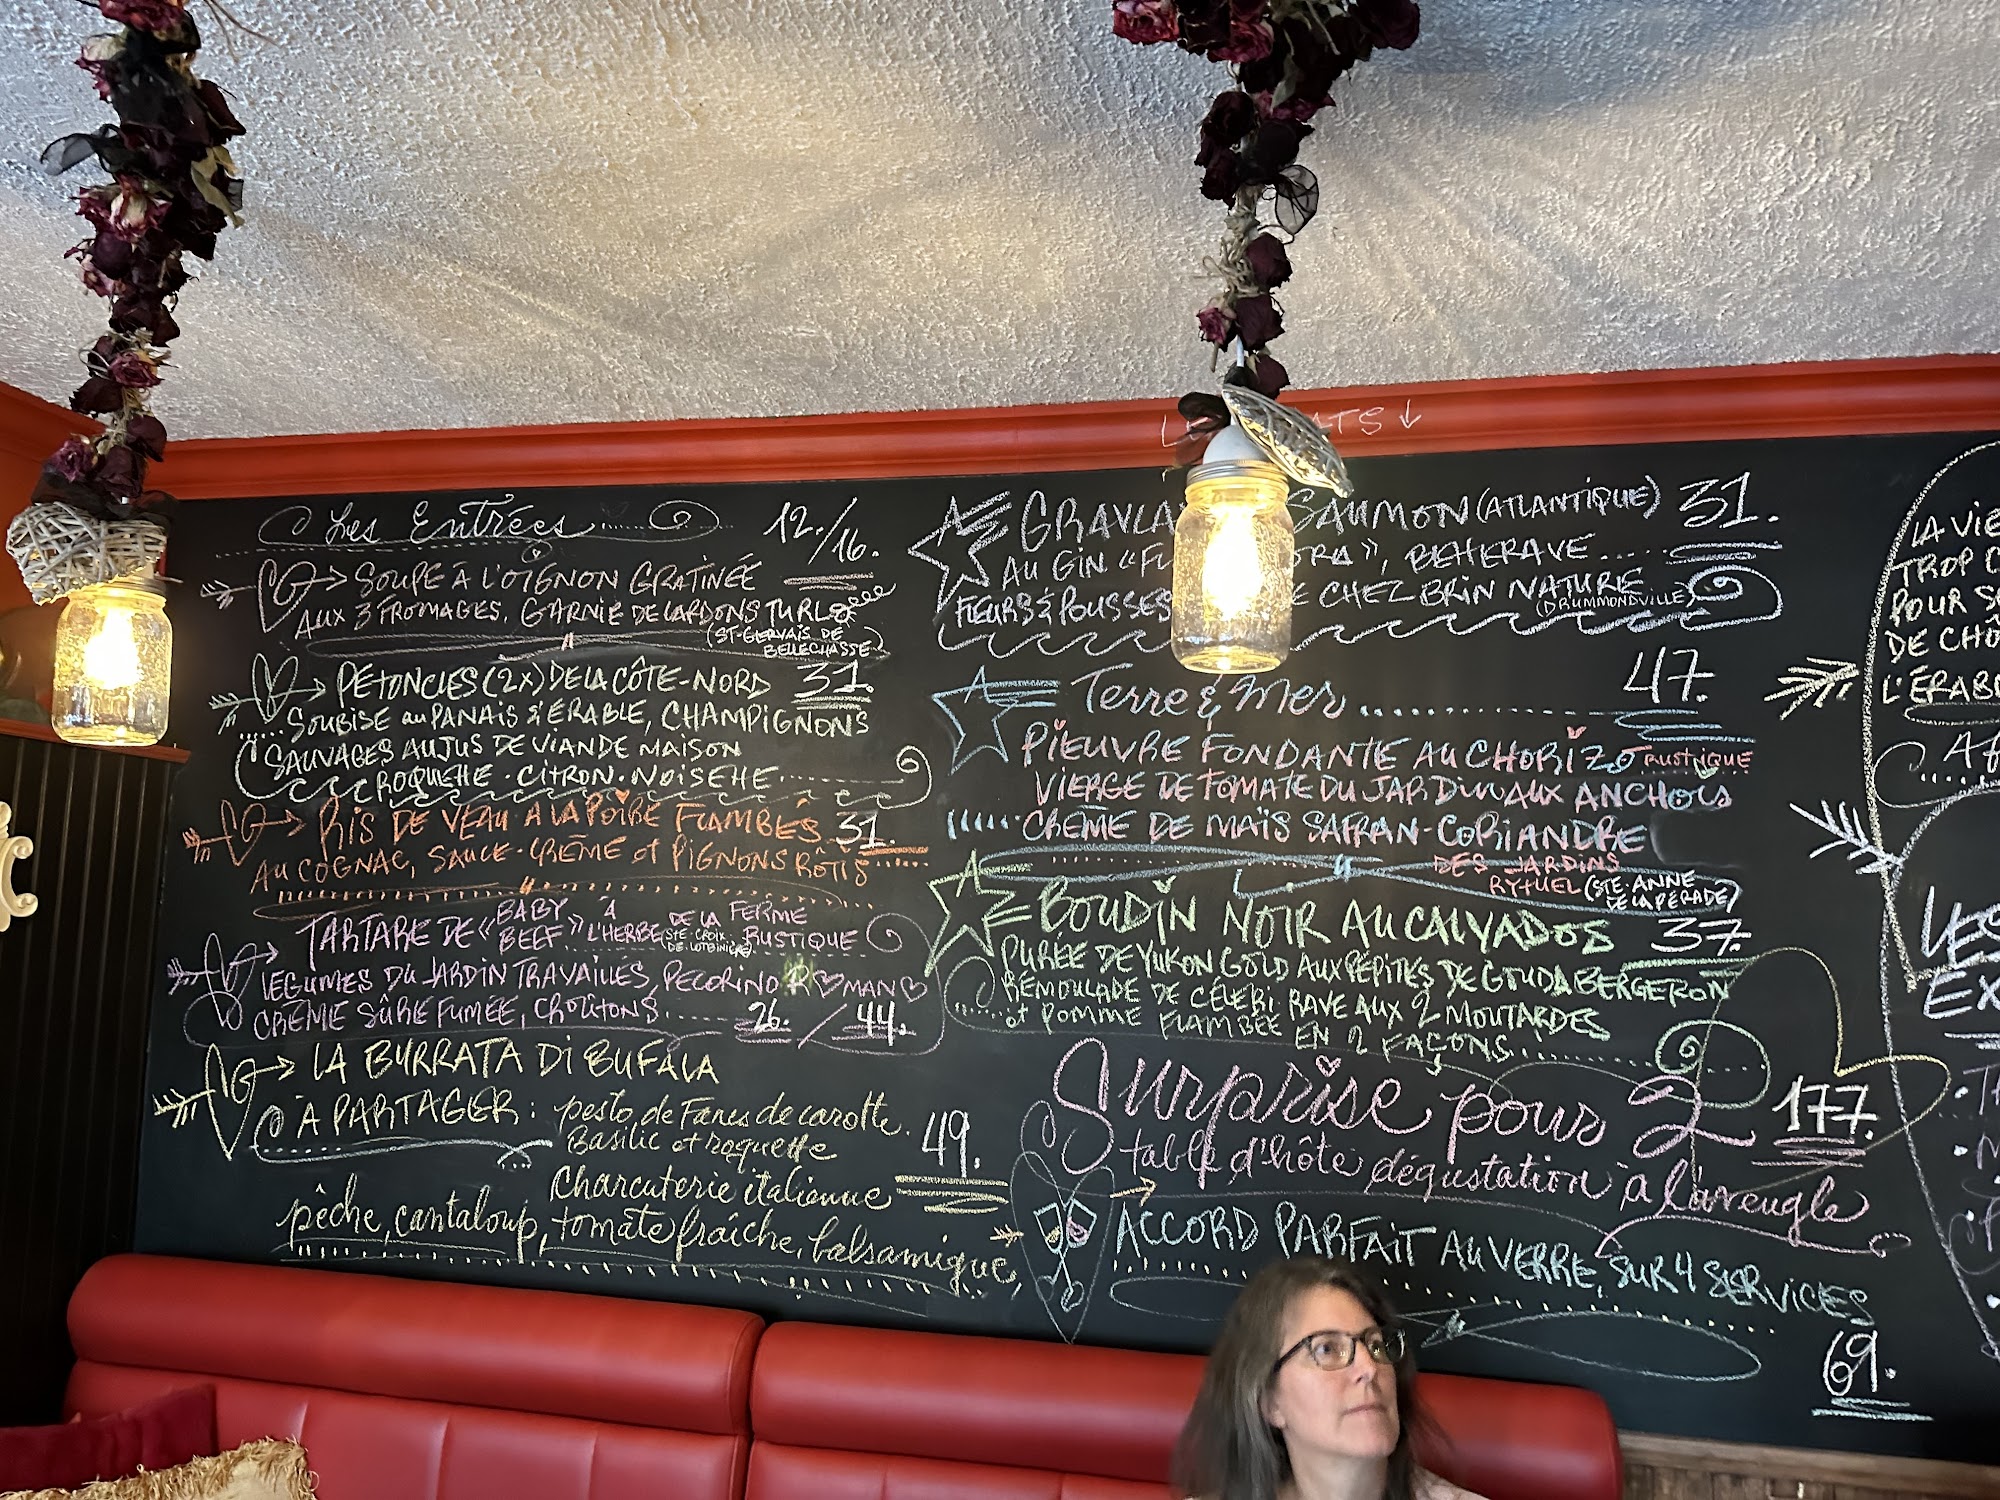 Les Entrées
12./16.
SOUPE À L'OIGNON GRATINÉE
AUX 3 FROMAGES, GARNIE DE LARDONS TURLO
(ST-GERVAIS DE
BELLECHASSE)
PÉTONCLES (2X) DE LA CÔTE-NORD 31.
SOUBISE au PANAIS & ÉRABLE, CHAMPIGNONS
SAUVAGES AU JUS DE VIANDE MAISON
ROQUETTE · CITRON · NOISETTE
RIS DE VEAU À LA POIRE FLAMBÉS 31.
AU COGNAC, SAUCE-CRÈME et PIGNONS RÔTIS
TARTARE DE « BABY BEEF » À L'HERBE DE LA FERME RUSTIQUE
(STE-CROIX DE-LOTBINIÈRE)
LÉGUMES DU JARDIN TRAVAILLÉS, PECORINO ROMANO
CRÈME SÛRE FUMÉE, CROÛTONS 26. / 44.
LA BURRATA DI BUFALA
À PARTAGER : pesto de Fanes de carotte.
Basilic et roquette
49.
Charcuterie italienne
pêche, cantaloup, tomate fraîche, balsamique,
ATS ↓
SAUMON (ATLANTIQUE) 31.
AU GIN , BETTERAVE
FLEURS & POUSSES CHEZ BRIN NATURE
(DRUMMONDVILLE)
Terre & Mer 47.
PIEUVRE FONDANTE AU CHORIZO RUSTIQUE
VIERGE DE TOMATE DU JARDIN AUX ANCHOIS
CRÈME DE MAÏS SAFRAN-CORIANDRE
DES JARDINS
RYTUEL (STE-ANNE
DE LA PÉRADE)
BOUDIN NOIR AU CALVADOS 37.
PURÉE DE YUKON GOLD AUX PÉPITES DE GOUDA BERGERON
RÉMOULADE DE CÉLERI-RAVE AUX 2 MOUTARDES
et POMME FLAMBÉE EN 2 FAÇONS
Surprise pour 2 177.
table d'hôte dégustation à l'aveugle
ACCORD PARFAIT AU VERRE, SUR 4 SERVICES
69.
LA VIE
TROP C
POUR S
DE CHÔ
L'ÉRAB